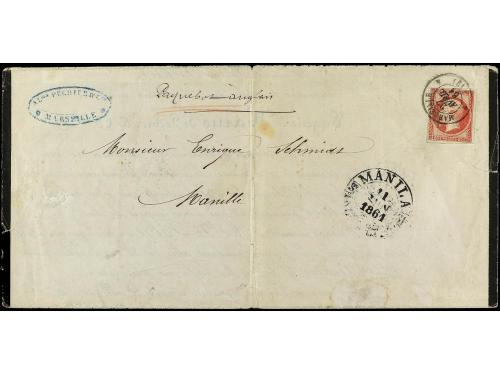 PECHIER
MARSEILLE
Paquebot anglais
Monsieur Enrique Schmidt
Manille
MANILA
11
1861